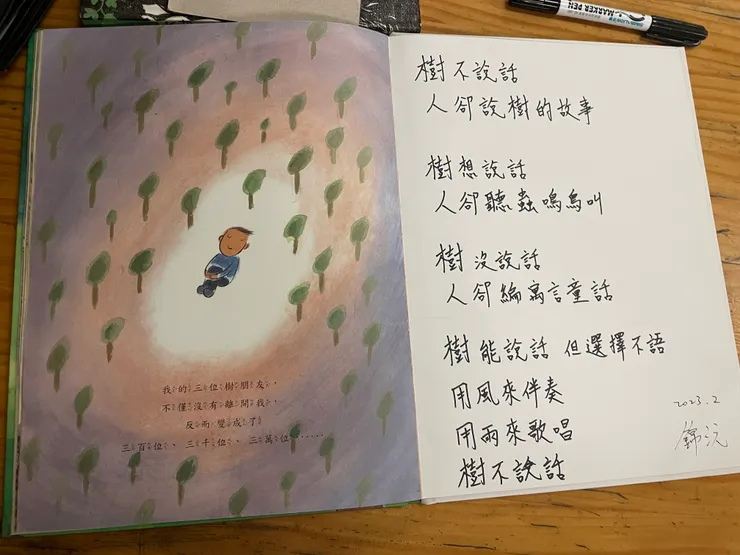 MARKER PEN
我的三位樹朋友，
不僅沒有離開我，
反而變成了
三百位、三千位、三萬位……
樹不說話
人卻說樹的故事
樹想說話
人卻聽蟲鳴鳥叫
樹沒說話
人卻編寓言童話
樹能說話 但選擇不語
用風來伴奏
用雨來歌唱
樹不說話
2023.2
錦沅